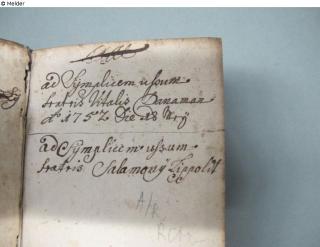 © Helder
ad Symplicem ussum
fratris Vitalis Danaman
Ao 1752 Die 28
ad Symplicem ussum
fratris Salamony Tippolit
A/R